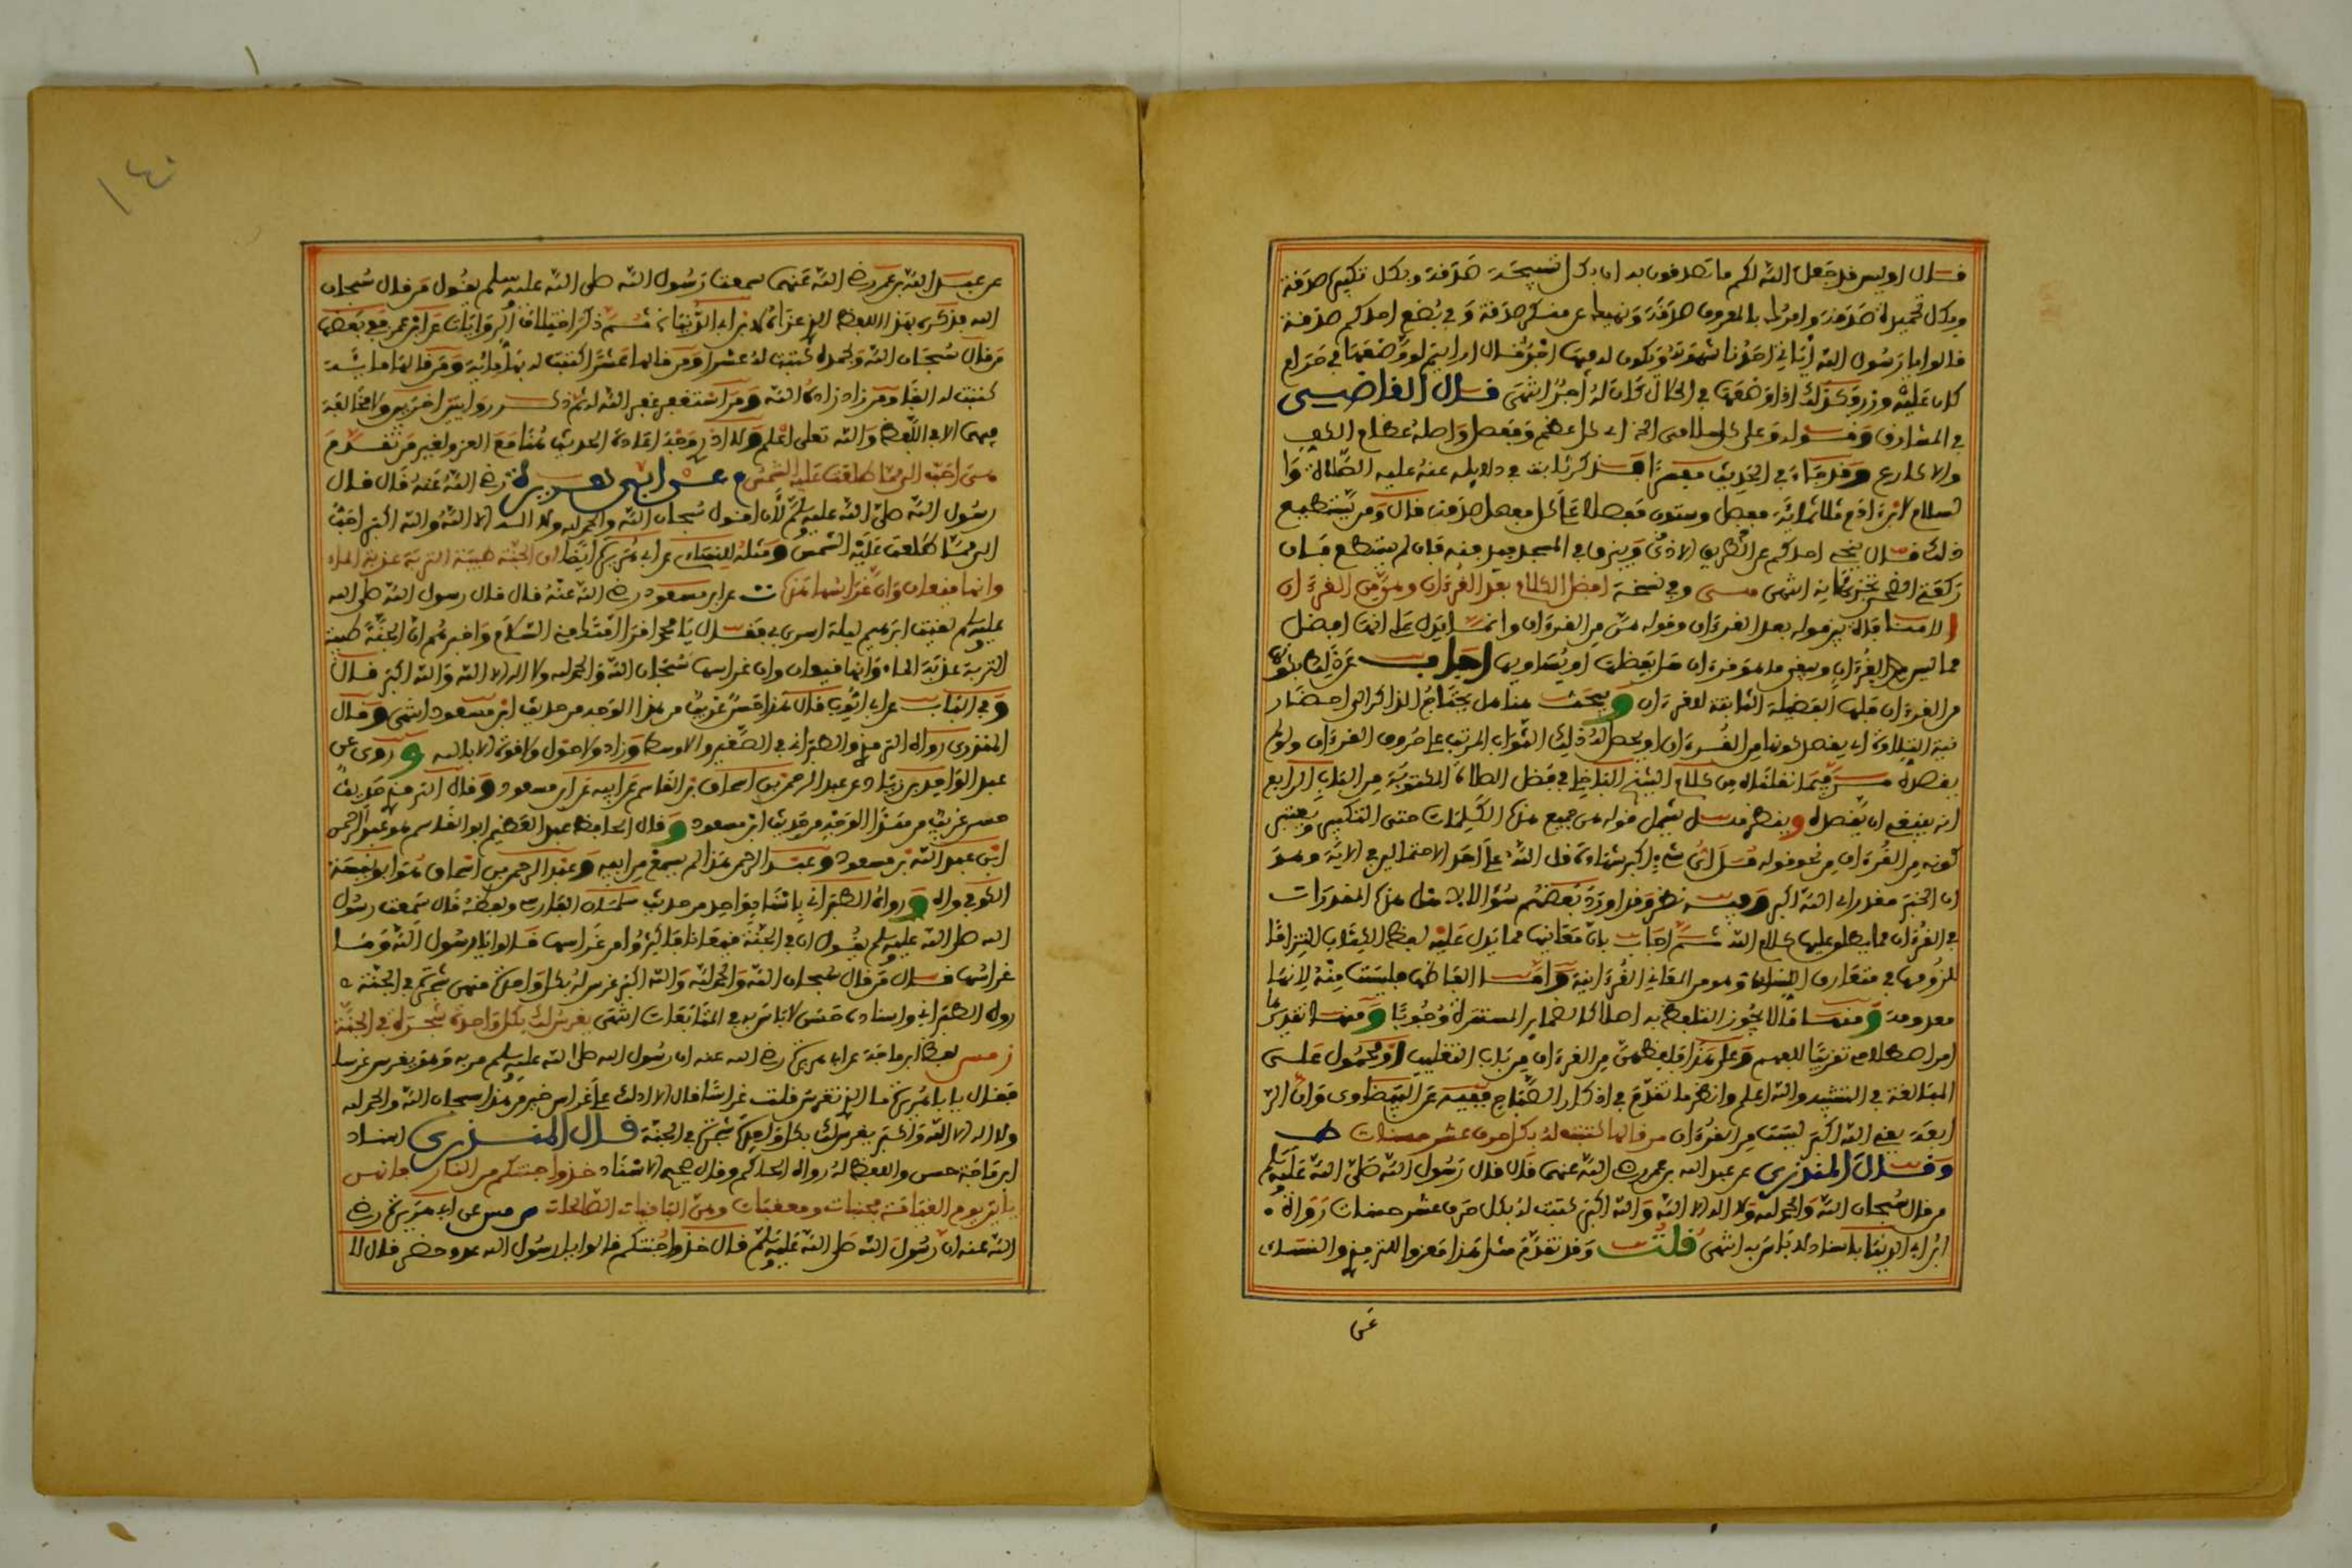 قال اوليس قد جعل الله لكم ما تصدقون به ان بكل تسبيحة صدقة وبكل تكبيرة صدقة
وبكل تحميدة صدقة وامر بالمعروف صدقة ونهي عن منكر صدقة وفي بضع احدكم صدقة
قالوا يا رسول الله اياتي احدنا شهوته ويكون له فيها اجر قال ارايتم لو وضعها في حرام
كان عليه وزر وكذلك اذا وضعها في الحلال كان له اجر انتهى قال القاضي
في المشارق وقوله وعلى كل سلامى اي كل عظم ومفصل واصله عظام الكف
والاكارع وقد جاء في الحديث عليه الصلاة وا
لسلام لابن ادم ثلاثمائة مفصل وستون مفصلا على كل مفصل صدقة قال ومن يستطيع
ذلك قال ينحي احدكم عن الطريق الاذى ويبزق في المسجد فيدفنه فان لم يستطع فان
ركعتي الضحى تجزئانه انتهى وفي نسخة افضل الكلام بعد القرءان وهن من القرءان
قوله بعد القرءان وقوله هن من القرءان على انها افضل
مما ليس من القرءان اجاب
من القرءان فلها الفضيلة الثابتة للقرءان و يحتاج الذاكر الى احضار
نية التلاوة اي يقصد كونها من القرءان او يحصل له ذلك الثواب المرتب على حروف القرءان ولو لم
يقصده من كلام الشيخ في فضل الصلاة المكتوبة من الباب الرابع
انه ينبغي ان يقصده و يشمل قوله من جميع هذه الكلمات حتى التكبير ويعتبر
كونه من القرءان من نحو قوله قل اي شيء اكبر شهادة قل الله على احد الاحتمالين في الاية وهو
ان الخبر مقدر اي الله اكبر وفيه نظر وقد اورد بعضهم سؤالا
في القرءان مما يطلق عليها كلام الله ثم اجاب بان معانيها مما يدل عليه لفظ الكتاب التزاما
للزومها في متعارف اللسان فهو من المعاني القرءانية واما الفاظها فليست منه لانها
معدومة و ومنها ما لا يجوز التلفظ به اصلا كالضمائر المستترة وجوبا و
امر اصطلاحي تقريبا للفهم وعلى هذا من القرءان من باب التغليب او محمول على
المبالغة في التشبيه والله اعلم وانظر ما تقدم في اذكار الصباح عن البيضاوي وان الر
ابعة يعني الله اكبر ليست من القرءان من قالها كتبت له بكل حرف عشر حسنات ط
وقال المنذري عن عبد الله بن عمر رضي الله عنهما قال قال رسول الله صلى الله عليه وسلم
من قال سبحان الله والحمد لله ولا اله الا الله والله اكبر كتبت له بكل حرف عشر حسنات رواه
ابن ابي الدنيا باسناد لا باس به انتهى قلت وقد تقدم مثل هذا معزوا للترمذي والنسائي
عن
١٤٠
عن عبد الله بن عمر رضي الله عنهما سمعت رسول الله صلى الله عليه وسلم يقول من قال سبحان
الله فذكره بهذا اللفظ الذي عزاه لابن ابي الدنيا ثم ذكر اختلاف الروايات عن ابن عمر في بعضها
من قال سبحان الله وبحمده كتبت له عشرا ومن قالها عشرا كتبت له بها مائة ومن قالها مائة
كتبت له الفا ومن زاد زاده الله ومن استغفر غفر الله له ثم ذكر روايتين اخريين
والله تعلى اعلم
هي احب الي مما طلعت عليه الشمس م عن ابي هريرة رضي الله عنه قال قال
رسول الله صلى الله عليه وسلم لأن اقول سبحان الله والحمد لله ولا اله الا الله والله اكبر احب
الي مما طلعت عليه الشمس ومثله للنسائي عن ابي هريرة ايضا ان الجنة طيبة التربة عذبة الماء
وانها قيعان وان غراسها هذه ت عن ابن مسعود رضي الله عنه قال قال رسول الله صلى الله
عليه وسلم لقيت ابراهيم ليلة اسري بي فقال يا محمد اقرا امتك مني السلام واخبرهم ان الجنة طيبة
التربة عذبة الماء وانها قيعان وان غراسها سبحان الله والحمد لله ولا اله الا الله والله اكبر قال
وفي الباب عن ابي ايوب قال هذا حسن غريب من هذا الوجه من حديث ابن مسعود انتهى وقال
المنذري رواه الترمذي والطبراني في الصغير والاوسط وزاد ولا حول ولا قوة الا بالله و روى عن
عبد الواحد بن زياد عن عبد الرحمن بن اسحاق عن القاسم عن ابيه عن ابن مسعود وقال الترمذي حديث
حسن غريب من هذا الوجه من حديث ابن مسعود و قال الحافظ عبد العظيم ابو القاسم هو عبد الرحمن
ابن عبد الله بن مسعود وعبد الرحمن هذا لم يسمع من ابيه وعبد الرحمن بن اسحاق هو ابو شيبة
الكوفي واه و رواه الطبراني باسناد واه من حديث سلمان الفارسي ولفظه قال سمعت رسول
الله صلى الله عليه وسلم يقول ان في الجنة قيعانا فاكثروا من غراسها قالوا يا رسول الله وما
غراسها قال من قال سبحان الله والحمد لله والله اكبر غرس له بكل واحدة منهن شجرة في الجنة
رواه الطبراني واسناده حسن لا باس به في المتابعات انتهى يغرس لك بكل واحدة شجرة في الجنة
ق مس لفظ ابن ماجة عن ابي هريرة رضي الله عنه ان رسول الله صلى الله عليه وسلم مر به وهو يغرس غرسا
فقال يا با هريرة ما الذي تغرس قلت غراسا قال الا ادلك على غراس خير من هذا سبحان الله والحمد لله
ولا اله الا الله والله اكبر يغرس لك بكل واحدة شجرة في الجنة قال المنذري اسناد
ابن ماجة حسن واللفظ له رواه الحاكم وقال صحيح الاسناد خذوا جنتكم من النار
ياتين يوم القيامة مجنبات ومعقبات وهن الباقيات الصالحات س مس عن ابي هريرة رضي
الله عنه ان رسول الله صلى الله عليه وسلم قال خذوا جنتكم قالوا يا رسول الله عدو حضر قال لا